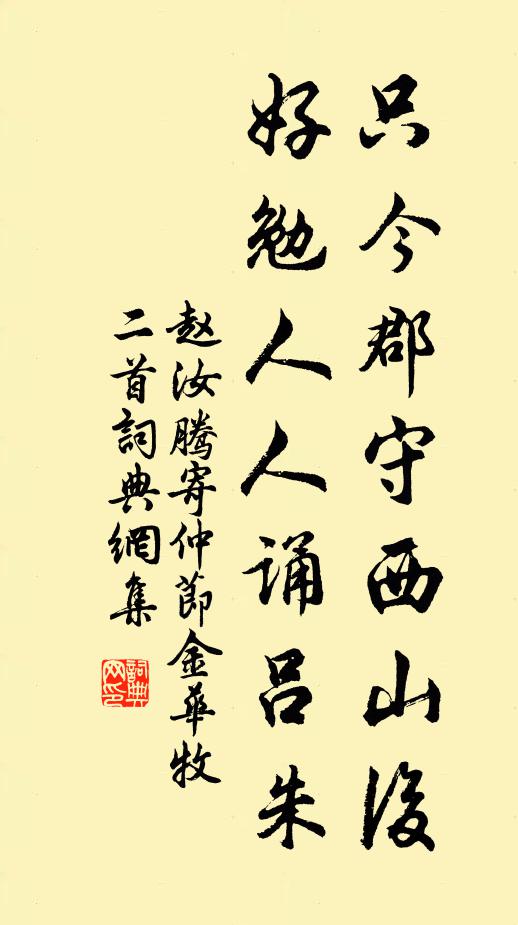 只今郡守西山後
好勉人人诵吕朱
赵汝腾寄仲節金華牧
二首詞典網集
詞典网印